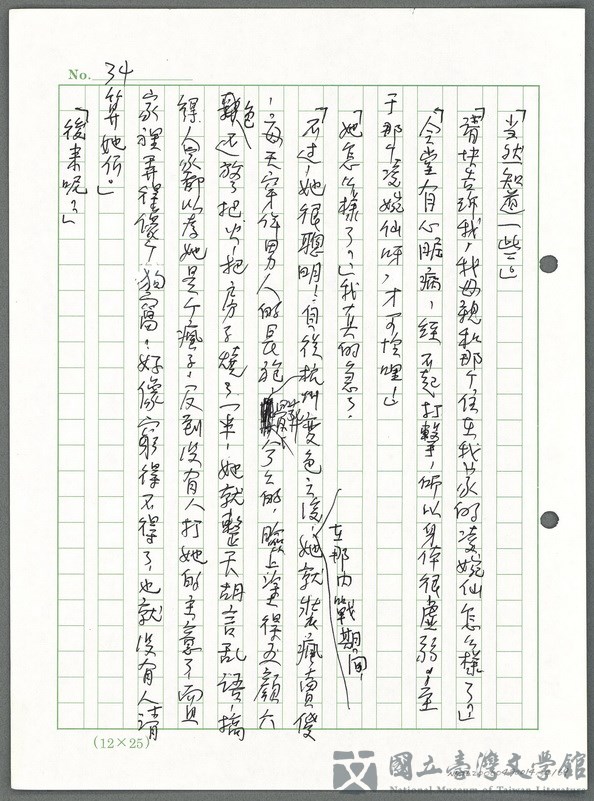 No. 34
「当然知道一些。」
「請快告訴我，我母親和那个住在我家的凌婉仙怎么樣了？」
「令堂有心脏病，経不起打擊，所以身体很虚弱。至
于那个凌婉仙呀，才可憐哩！」
「她怎么樣了？」我真的急了。
「不过，她很聰明！自從杭州变色之後，她就裝瘋賣傻
在那內戰期間，
，每天穿件男人的長袍，髒人了的，臉上塗得五顏六
色，还放了把火，把房子燒了一半，她就整天胡言乱語，搞
得人家都以為她是个瘋子，反到没有人打她的主意了。而且
家裡弄得像个狗窩，好像窮得不得了，也就没有人請
算她何。」
「後来呢？」
(12×25)
國立臺灣文學館
National Museum of Taiwan Literature